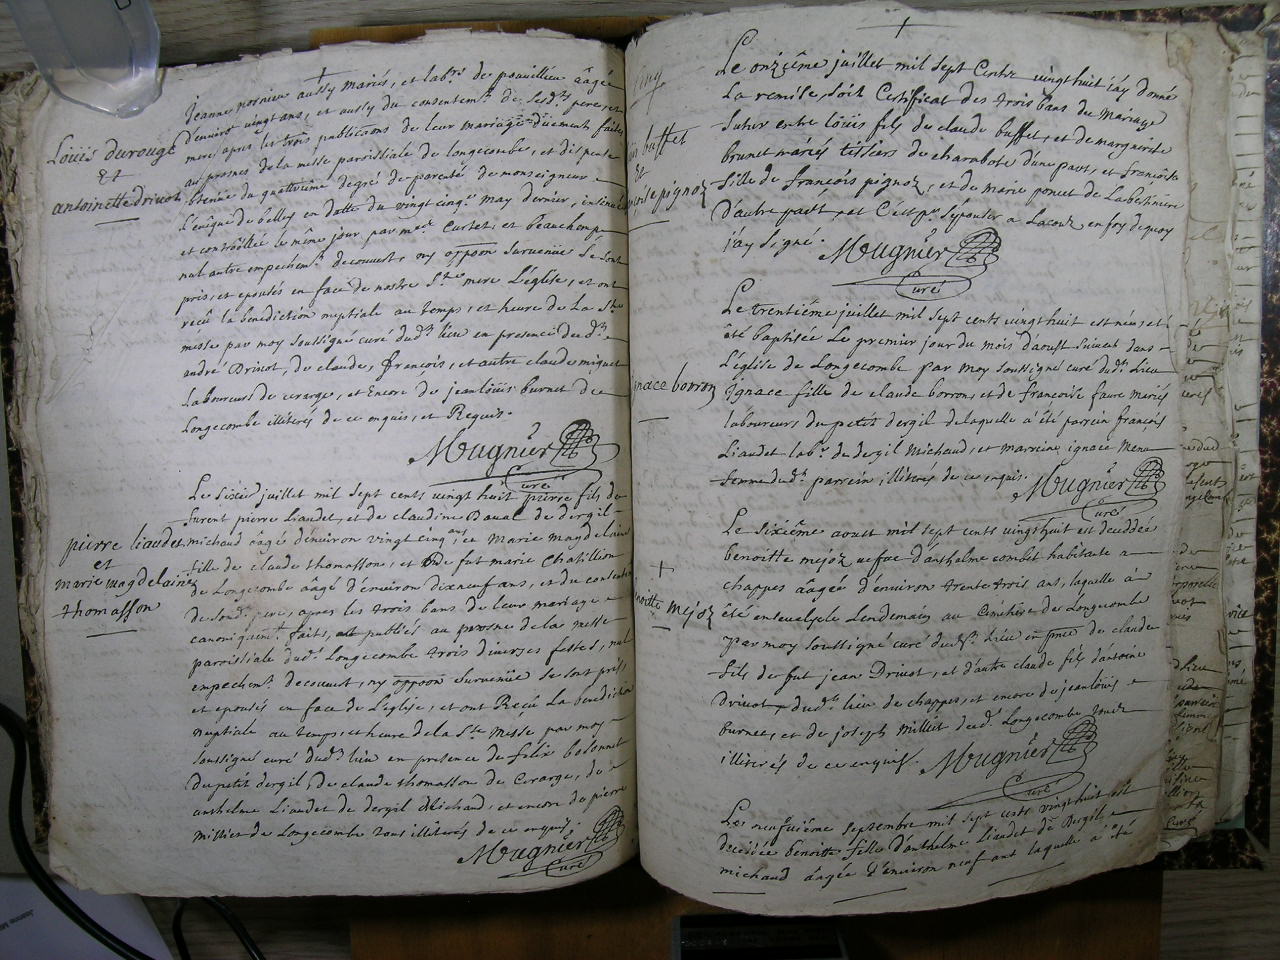 Jeanne mornieu aussy mariés, et lab.rs de pouuillieu ââgée
d'enuiron vingt ans, et aussy du consentem.t de sesd.ts pere, et
mere, apres les trois publications de leur mariage düement faites
au prosnes de la messe parrissiale de longecombe, et dispense
obtenüe du quattrieme degré de parenté de monseigneur
L'éuêque de belley en datte du vingt cinq.e may dernier, insinuée
et controllée le même jour par m.es Curtet, et beauchamp
nul autre empechem.t decouuert, ny oppoon suruenüe se sont
pris, et epousés en face de nostre S.te mere L'église, et ont
reçü la benediction nuptiale au temps, et heure de la S.te
messe par moy soussigné curé dud.t lieu en presence dud.t
andré Driuot, de claude, françois, et autre claude miguet
Laboureurs de cerarge, et Encore de jean loüis burnet de
Longecombe illiterés de ce enquis, et Requis.
Mugnier
Curé
Loüis durouge
Et
antoinette driuot
Le Sixie juillet mil sept cents vingt huit pierre fils de
furent pierre Liaudet, et de claudine Daual de dergil
michaud ââgé d'enuiron vingt cinq ans, et Marie magdelaine
fille de claude thomasson, et de fut marie Chatillion
de Longecombe ââgé d'enuiron dixneuf ans, et du consente
de sond. pere, apres les trois bans de leur mariage
canoniquem.t faits, publiés au prosne de la messe
paroissiale dud.t Longecombe trois diuerses festes, nul
empechem.t decouuert, ny oppoon suruenüe se sont pris
et epousés en face de L'eglise, et ont Reçü La benediction
nuptiale au temps, et heure de la S.te messe par moy
soussigné curé dud.t lieu en presence de felix bolonnet
du petit dergil, de claude thomasson de Cerarge, de
anthelme Liaudet de dergil Michaud, et encore de pierre
millier de Longecombe tous illiterés de ce enquis.
Mugnier
Curé
pierre liaudet
et
marie magdelaine
thomasson
Le onziême juillet mil sept Cents vingt huit j'ay donné
La remise, soit Certificat des trois bans du Mariage
futur entre loüis fils de claude buffet, et de marguerite
brunet mariés tissiers de charabote d'une part, et françoise
fille de françois pignoz, et de marie poncet de Labertiniere
d'autre part, et C'est p.r Espouser a Lacoux, en foy de quoy
j'ay signé.
Mugnier
Curé
buffet
Et
pignoz
Le trentiéme juillet mil sept cents vingt huit est née, et
été baptisée Le premier jour du mois d'aoust suiuant dans
L'église de Longecombe par moy soussigné curé dud.t Lieu
Ignace fille de claude borron, et de francoise faure mariés
laboureurs du petit dergil de laquelle a été parrein françois
Liaudet lab.r de dergil Michaud, et marreine ignace Mena
femme dud.t parrein, illiterés de ce enquis.
Mugnier
Curé
ignace borron
Le sixiême aoust mil sept cents vingt huit est decedée
benoitte méjoz uefue d'anthelme combet habitante a
chappes ââgée d'enuiron trente trois ans, laquelle à
été enseuelye Lendemain au Cimitiere de Longecombe
par moy soussigné curé dud.t Lieu en p.nce de claude
fils de fut jean Driuot, et d'autre claude fils d'antoine
Driuot, dud.t lieu de chappes, et encore de jean loüis
burnet, et de joseph milliet dud.t Longecombe tous
illiterés de ce enquis.
Mugnier
Curé
Méjoz
Le neufuiéme septembre mil sept cents vingt huit est
decedée benoitte fille d'anthelme Liaudet de Dergil
michaud ââgée d'enuiron neuf ans laquelle à été